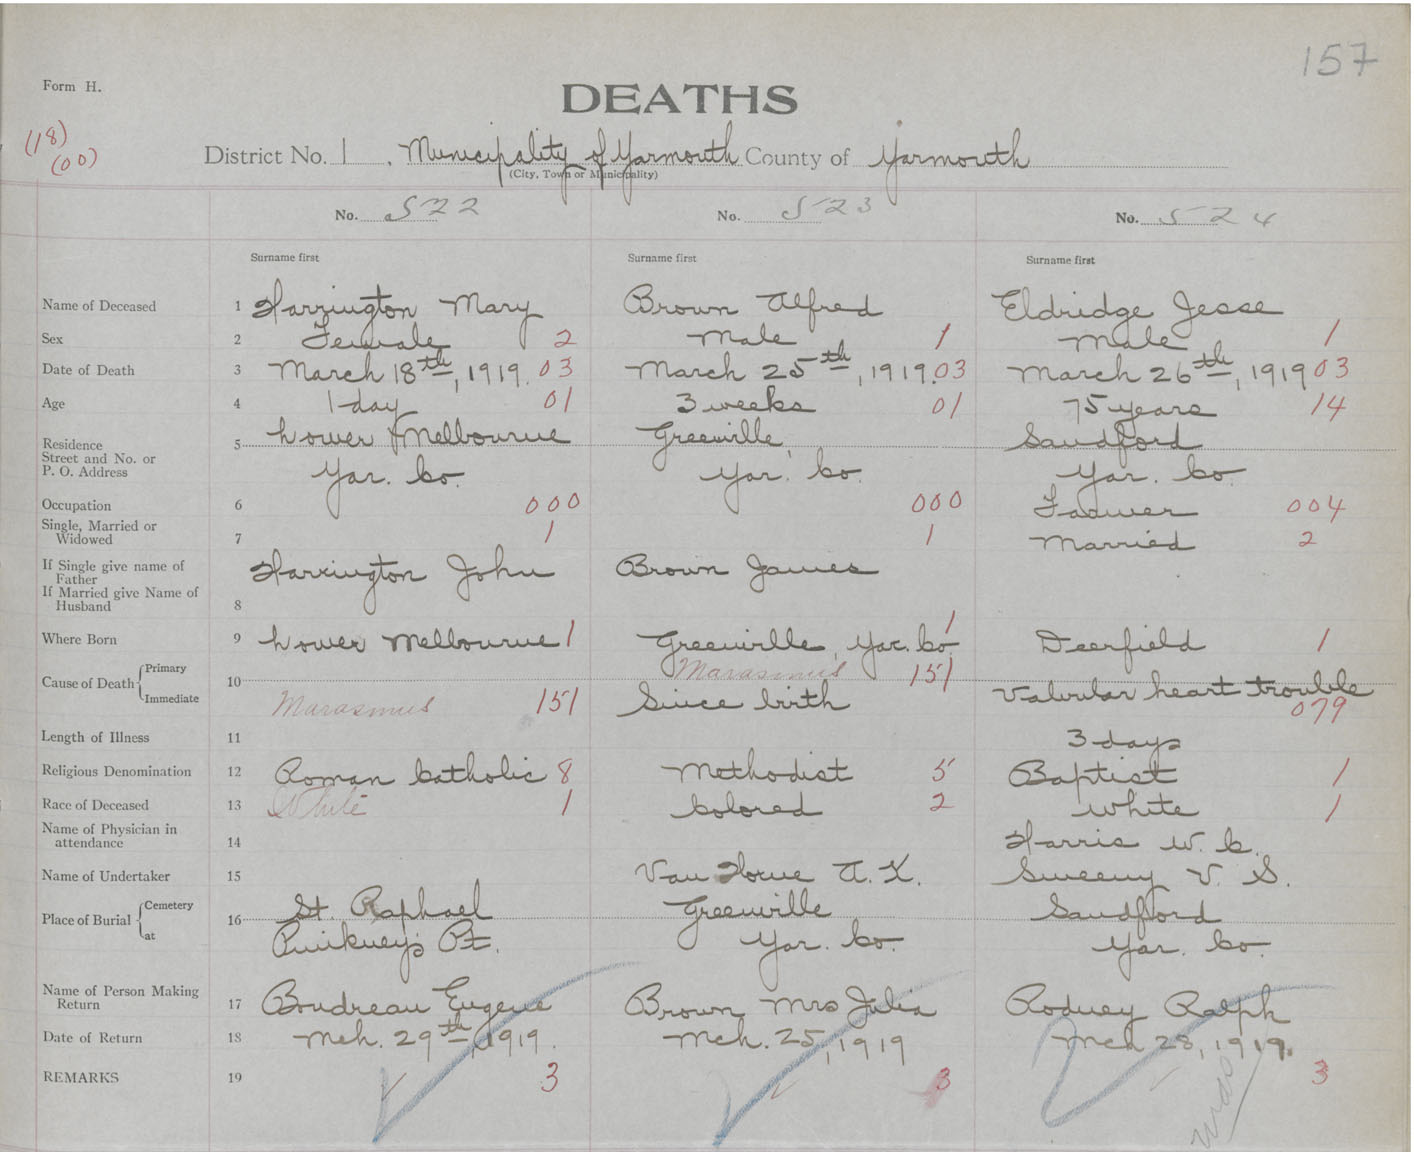 157
Form H.
DEATHS
(18)
(00)
District No. 1, Municipality of Yarmouth County of Yarmouth
(City, Town or Municipality)
No. 522 No. 523 No. 524
Surname first Surname first Surname first
Name of Deceased 1 Harrington Mary Brown Alfred Eldridge Jesse
Sex 2 Female 2 Male 1 Male 1
Date of Death 3 March 18th, 1919. 03 March 25th, 1919. 03 March 26th, 1919 03
Age 4 1 day 01 3 weeks 01 75 years 14
Residence Street and No. or P. O. Address 5 Lower Melbourne Greenville, Sandford
Yar. Co. Yar. Co. Yar. Co.
Occupation 6 000 000 Farmer 004
Single, Married or Widowed 7 1 1 Married 2
If Single give name of Father
If Married give Name of Husband 8 Harrington John Brown James
Where Born 9 Lower Melbourne 1 Greenville, Yar. Co. 1 Deerfield 1
Cause of Death { Primary Marasmus 151
Immediate 10 Marasmus 151 Since birth Valvular heart trouble 079
Length of Illness 11 3 days
Religious Denomination 12 Roman Catholic 8 Methodist 5 Baptist 1
Race of Deceased 13 White 1 Colored 2 White 1
Name of Physician in attendance 14 Harris W. C.
Name of Undertaker 15 Van Horne A. K. Sweeny V. S.
Place of Burial { Cemetery 16 St. Raphael Greenville Sandford
at Pinkney's Pt. Yar. Co. Yar. Co.
Name of Person Making Return 17 Boudreau Eugene Brown Mrs Julia Rodney Ralph
Date of Return 18 Mch. 29th, 1919. Mch. 25, 1919 Mch 28, 1919.
REMARKS 19 3 3 3